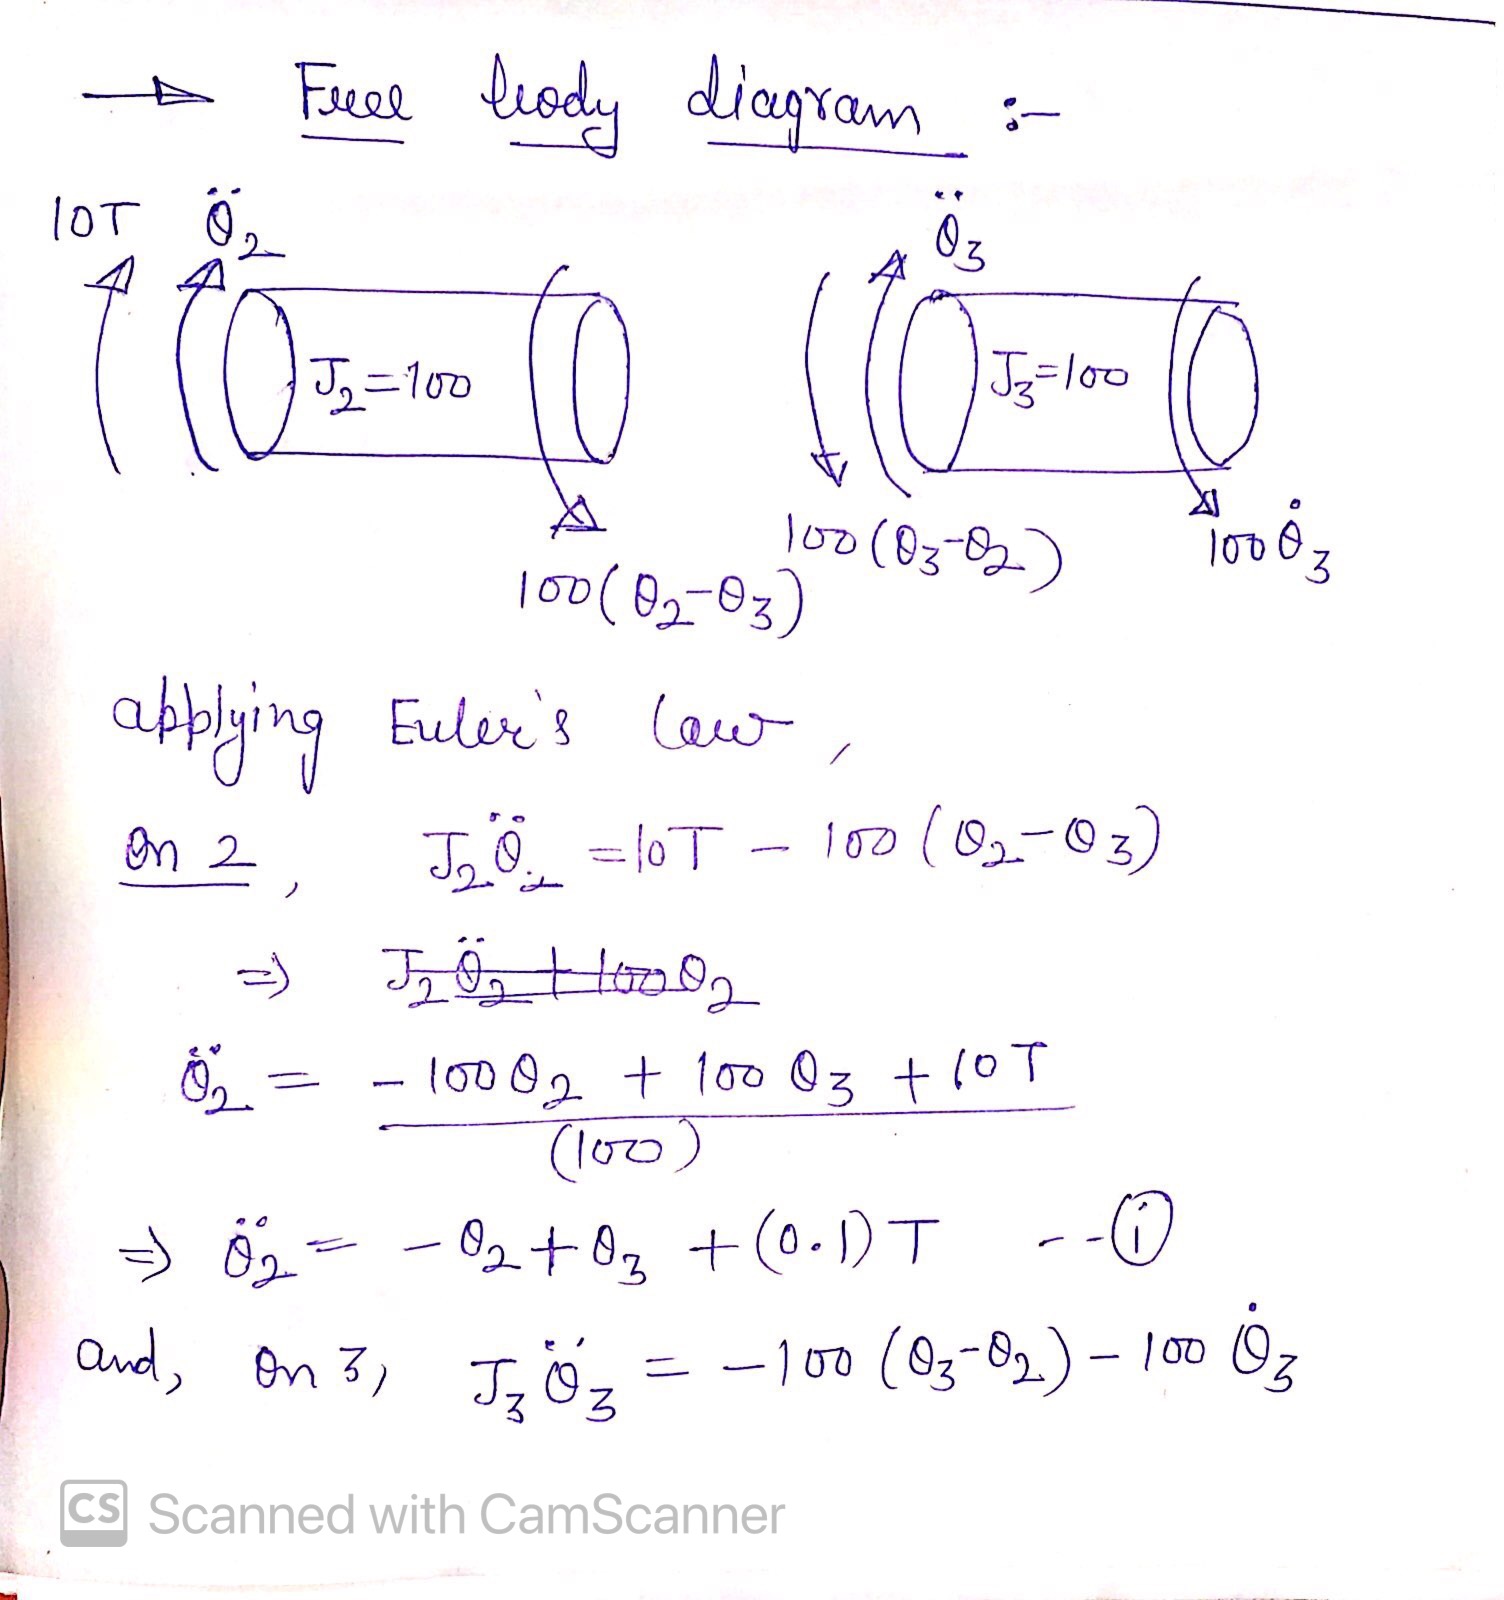 → Free body diagram :-
10T θ̈₂ θ̈₃
J₂=100 J₃=100
100(θ₂-θ₃) 100(θ₃-θ₂) 100θ̇₃
applying Euler's law,
On 2, J₂θ̈₂ = 10T - 100(θ₂-θ₃)
⇒ J₂θ̈₂ + 100θ₂
θ̈₂ = -100θ₂ + 100θ₃ + 10T
(100)
⇒ θ̈₂ = -θ₂ + θ₃ + (0.1)T --(i)
and, On 3, J₃θ̈₃ = -100(θ₃-θ₂) - 100θ̇₃
CS Scanned with CamScanner